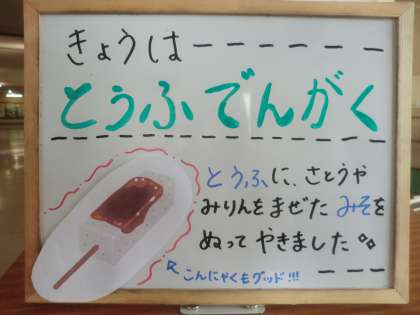 きょうは------
とうふでんがく
とうふに、さとうや
みりんをまぜた みそを
ぬって やきました。
こんにゃくもグッド!!!